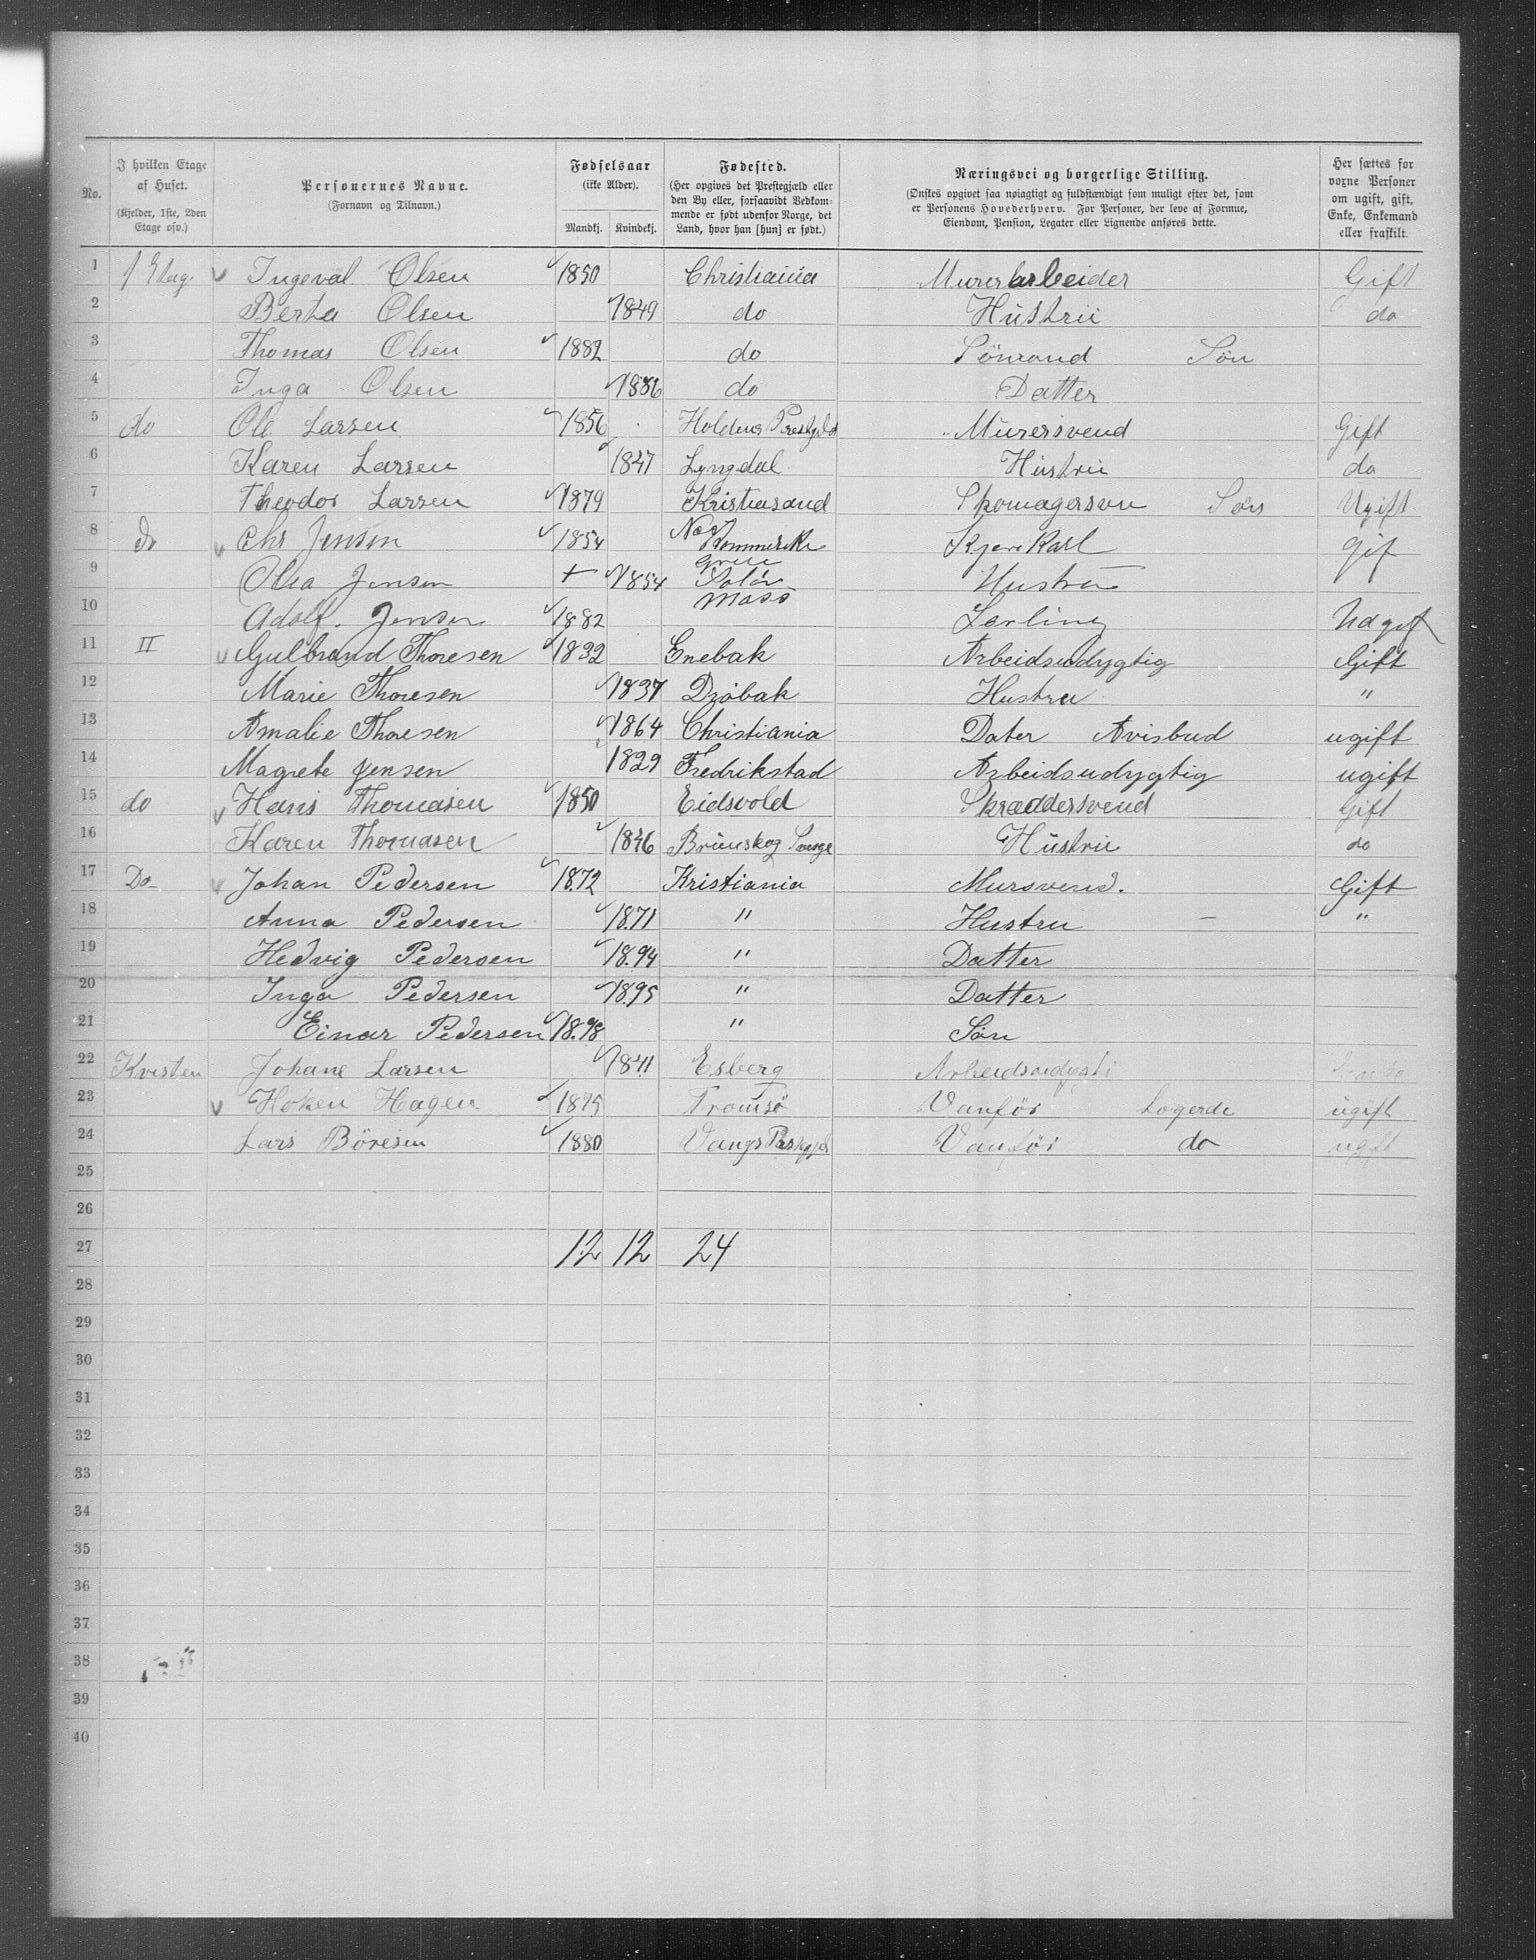 No.
I hvilken Etage af Huset.
(Kjelder, 1ste, 2den Etage osv.)
Personernes Navne.
(Fornavn og Tilnavn.)
Fødselsaar
(ikke Alder).
Mandkj. Kvindekj.
Fødested.
(Her opgives det Prestegjæld eller den By eller, forsaavidt Vedkommende er født udenfor Norge, det Land, hvor han [hun] er født.)
Næringsvei og borgerlige Stilling.
(Ønskes opgivet saa nøiagtigt og fuldstændigt som muligt efter det, som er Personens Hovederhverv. For Personer, der leve af Formue, Eiendom, Pension, Legater eller Lignende anføres dette.
Her sættes for voxne Personer om ugift, gift, Enke, Enkemand eller fraskilt.
1 1 Etag Ingeval Olsen 1850 Christiania Murerarbeider Gift
2 Berta Olsen 1849 do Hustru do
3 Thomas Olsen 1882 do Søn
4 Inga Olsen 1886 do Datter
5 do Ole Larsen 1856 Holdens Murersvend Gift
6 Karen Larsen 1847 Lyngdal Hustru do
7 Theodor Larsen 1879 Kristiasand Søn Ugift
8 do Chr Jensen 1854 Kjørekarl Gif
9 Olea Jensen + 1854 Grue Solør Hustru
10 Adolf. Jensen 1882 Moss Lerling
11 II Gulbrand Thoresen 1832 Enebak Arbeidsudygtig Gift
12 Marie Thoresen 1837 Drøbak Hustru "
13 Amalie Thoresen 1864 Christiania Dater Avisbud ugift
14 Magrete Jensen 1829 Fredrikstad Arbeidsudygtig ugift
15 do Hans Thomasen 1850 Eidsvold Skræddersvend Gift
16 Karen Thomasen 1846 Brunskog Hustru do
17 Do Johan Pedersen 1872 Kristiania Mursvend. Gift
18 Anna Pedersen 1871 " Hustru — "
19 Hedvig Pedersen 1894 " Datter
20 Inga Pedersen 1895 " Datter
21 Einar Pedersen 1898 " Søn
22 Kvisten Johane Larsen 1841 Esberg
23 Hoken Hagen Tromsø Vanför Logerde ugift
24 Lars Böresen 1880 Vangs Vanför do ugift
25
26
27 12 12 24
28
29
30
31
32
33
34
35
36
37
38
39
40